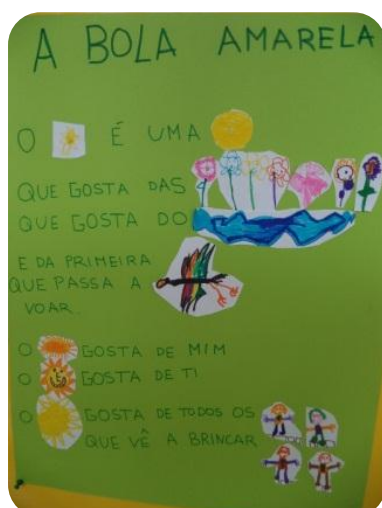 A BOLA AMARELA
O É UMA
QUE GOSTA DAS
QUE GOSTA DO
E DA PRIMEIRA
QUE PASSA A
VOAR.
O GOSTA DE MIM
O GOSTA DE TI
O GOSTA DE TODOS OS
QUE VÊ A BRINCAR